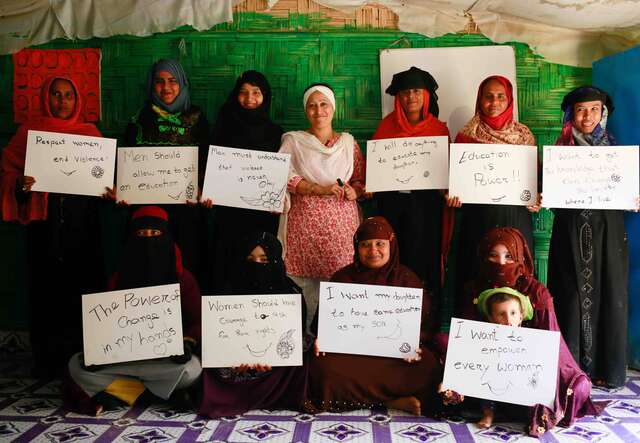 Respect women,
end violence!
Men should
allow me to get
an education
Men must understand
that violence
is never
Okay
I will do anything to
educate my
daughters
Education is
Power!!
I want to get
the knowledge to
change
the society
where I live
The Power of
Change is
in my hands
Women should have
courage to ask
for their rights
I want my daughter
to have same education
as my son
I want to
empower
every woman